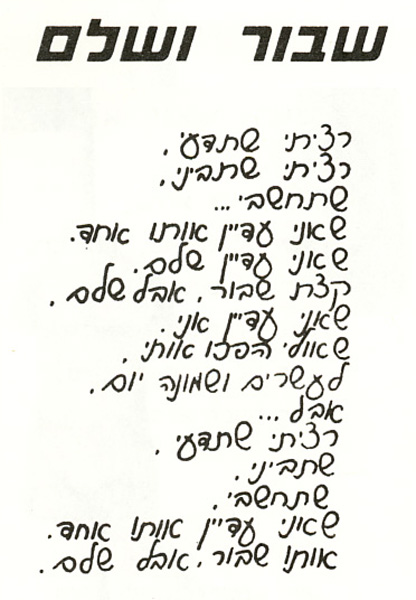 שבור ושלם
רציתי שתדעי.
רציתי שתביני.
שתחשבי...
שאני עדיין אותו אחד.
שאני עדיין שלם.
קצת שבור. אבל שלם.
שאני עדיין אני.
שאולי הפכו אותי.
לעשרים ושמונה יום.
אבל...
רציתי שתדעי.
שתביני.
שתחשבי.
שאני עדיין אותו אחד.
אותו שבור. אבל שלם.